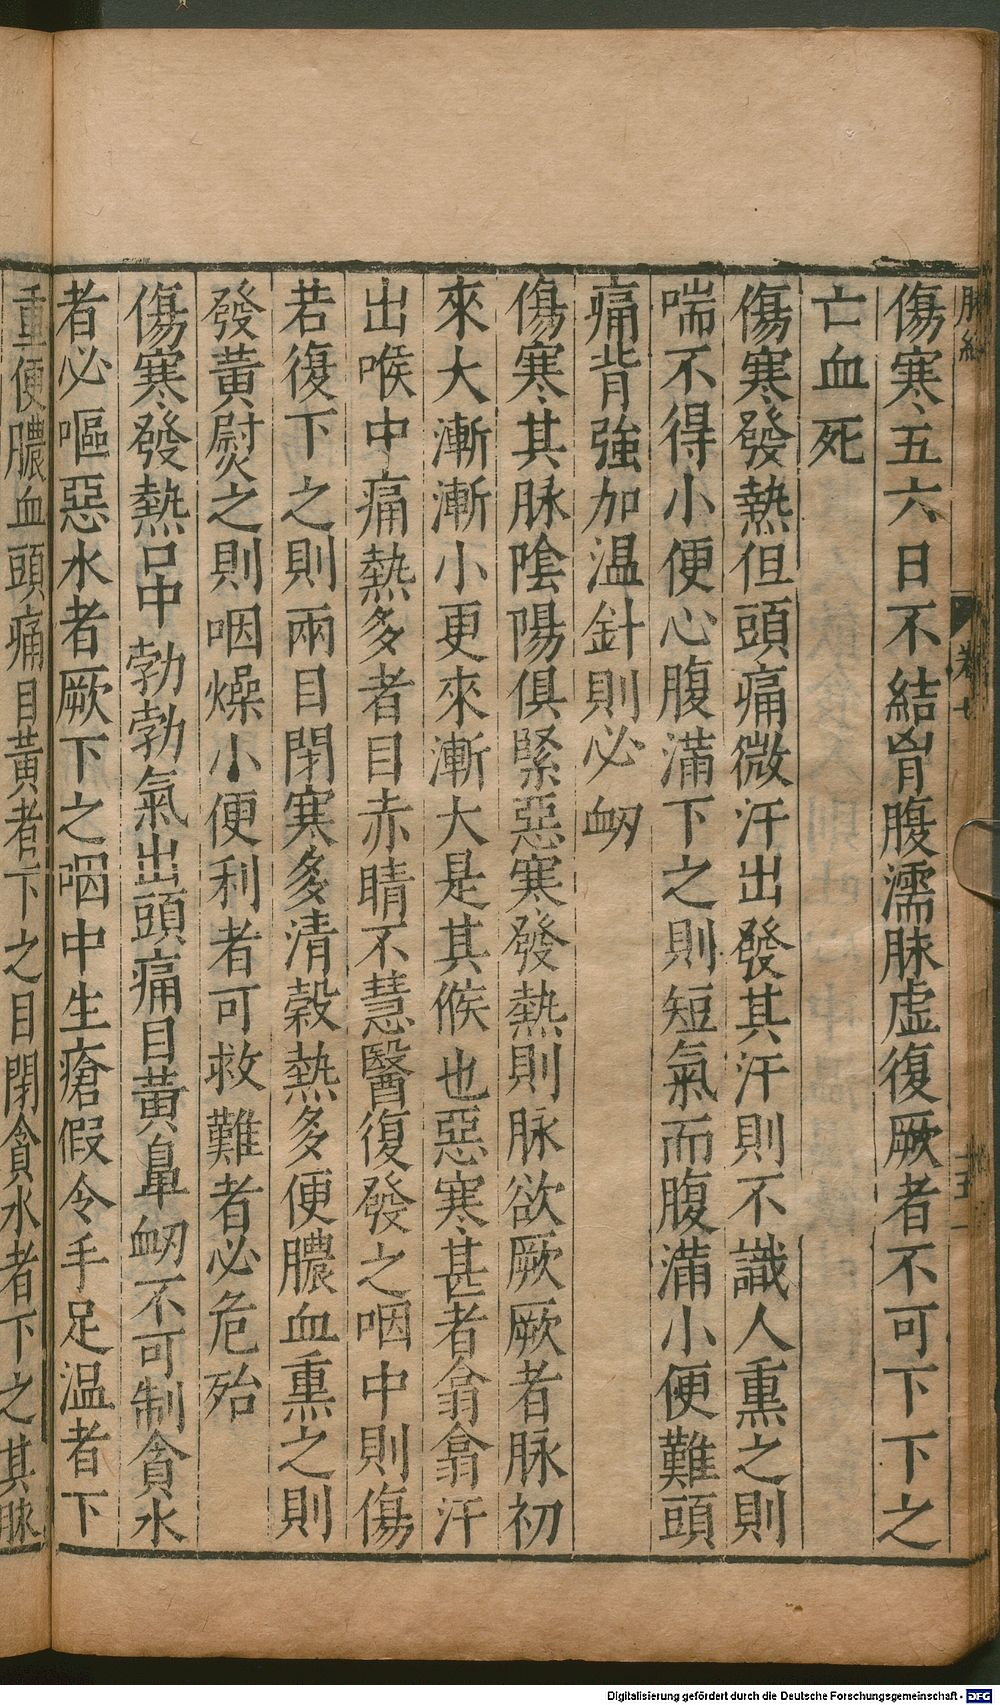 脉經 卷七 十五
傷寒五六日不結胷腹濡脉虛復厥者不可下下之
亡血死
傷寒發熱但頭痛微汗出發其汗則不識人熏之則
喘不得小便心腹滿下之則短氣而腹滿小便難頭
痛背強加温針則必衂
傷寒其脉陰陽俱緊惡寒發熱則脉欲厥厥者脉初
來大漸漸小更來漸大是其候也惡寒甚者翕翕汗
出喉中痛熱多者目赤睛不慧醫復發之咽中則傷
若復下之則兩目閉寒多清穀熱多便膿血熏之則
發黃熨之則咽燥小便利者可救難者必危殆
傷寒發熱口中勃勃氣出頭痛目黃鼻衂不可制貪水
者必嘔惡水者厥下之咽中生瘡假令手足温者下
重便膿血頭痛目黃者下之目閉貪水者下之其脉
Digitalisierung gefördert durch die Deutsche Forschungsgemeinschaft - DFG